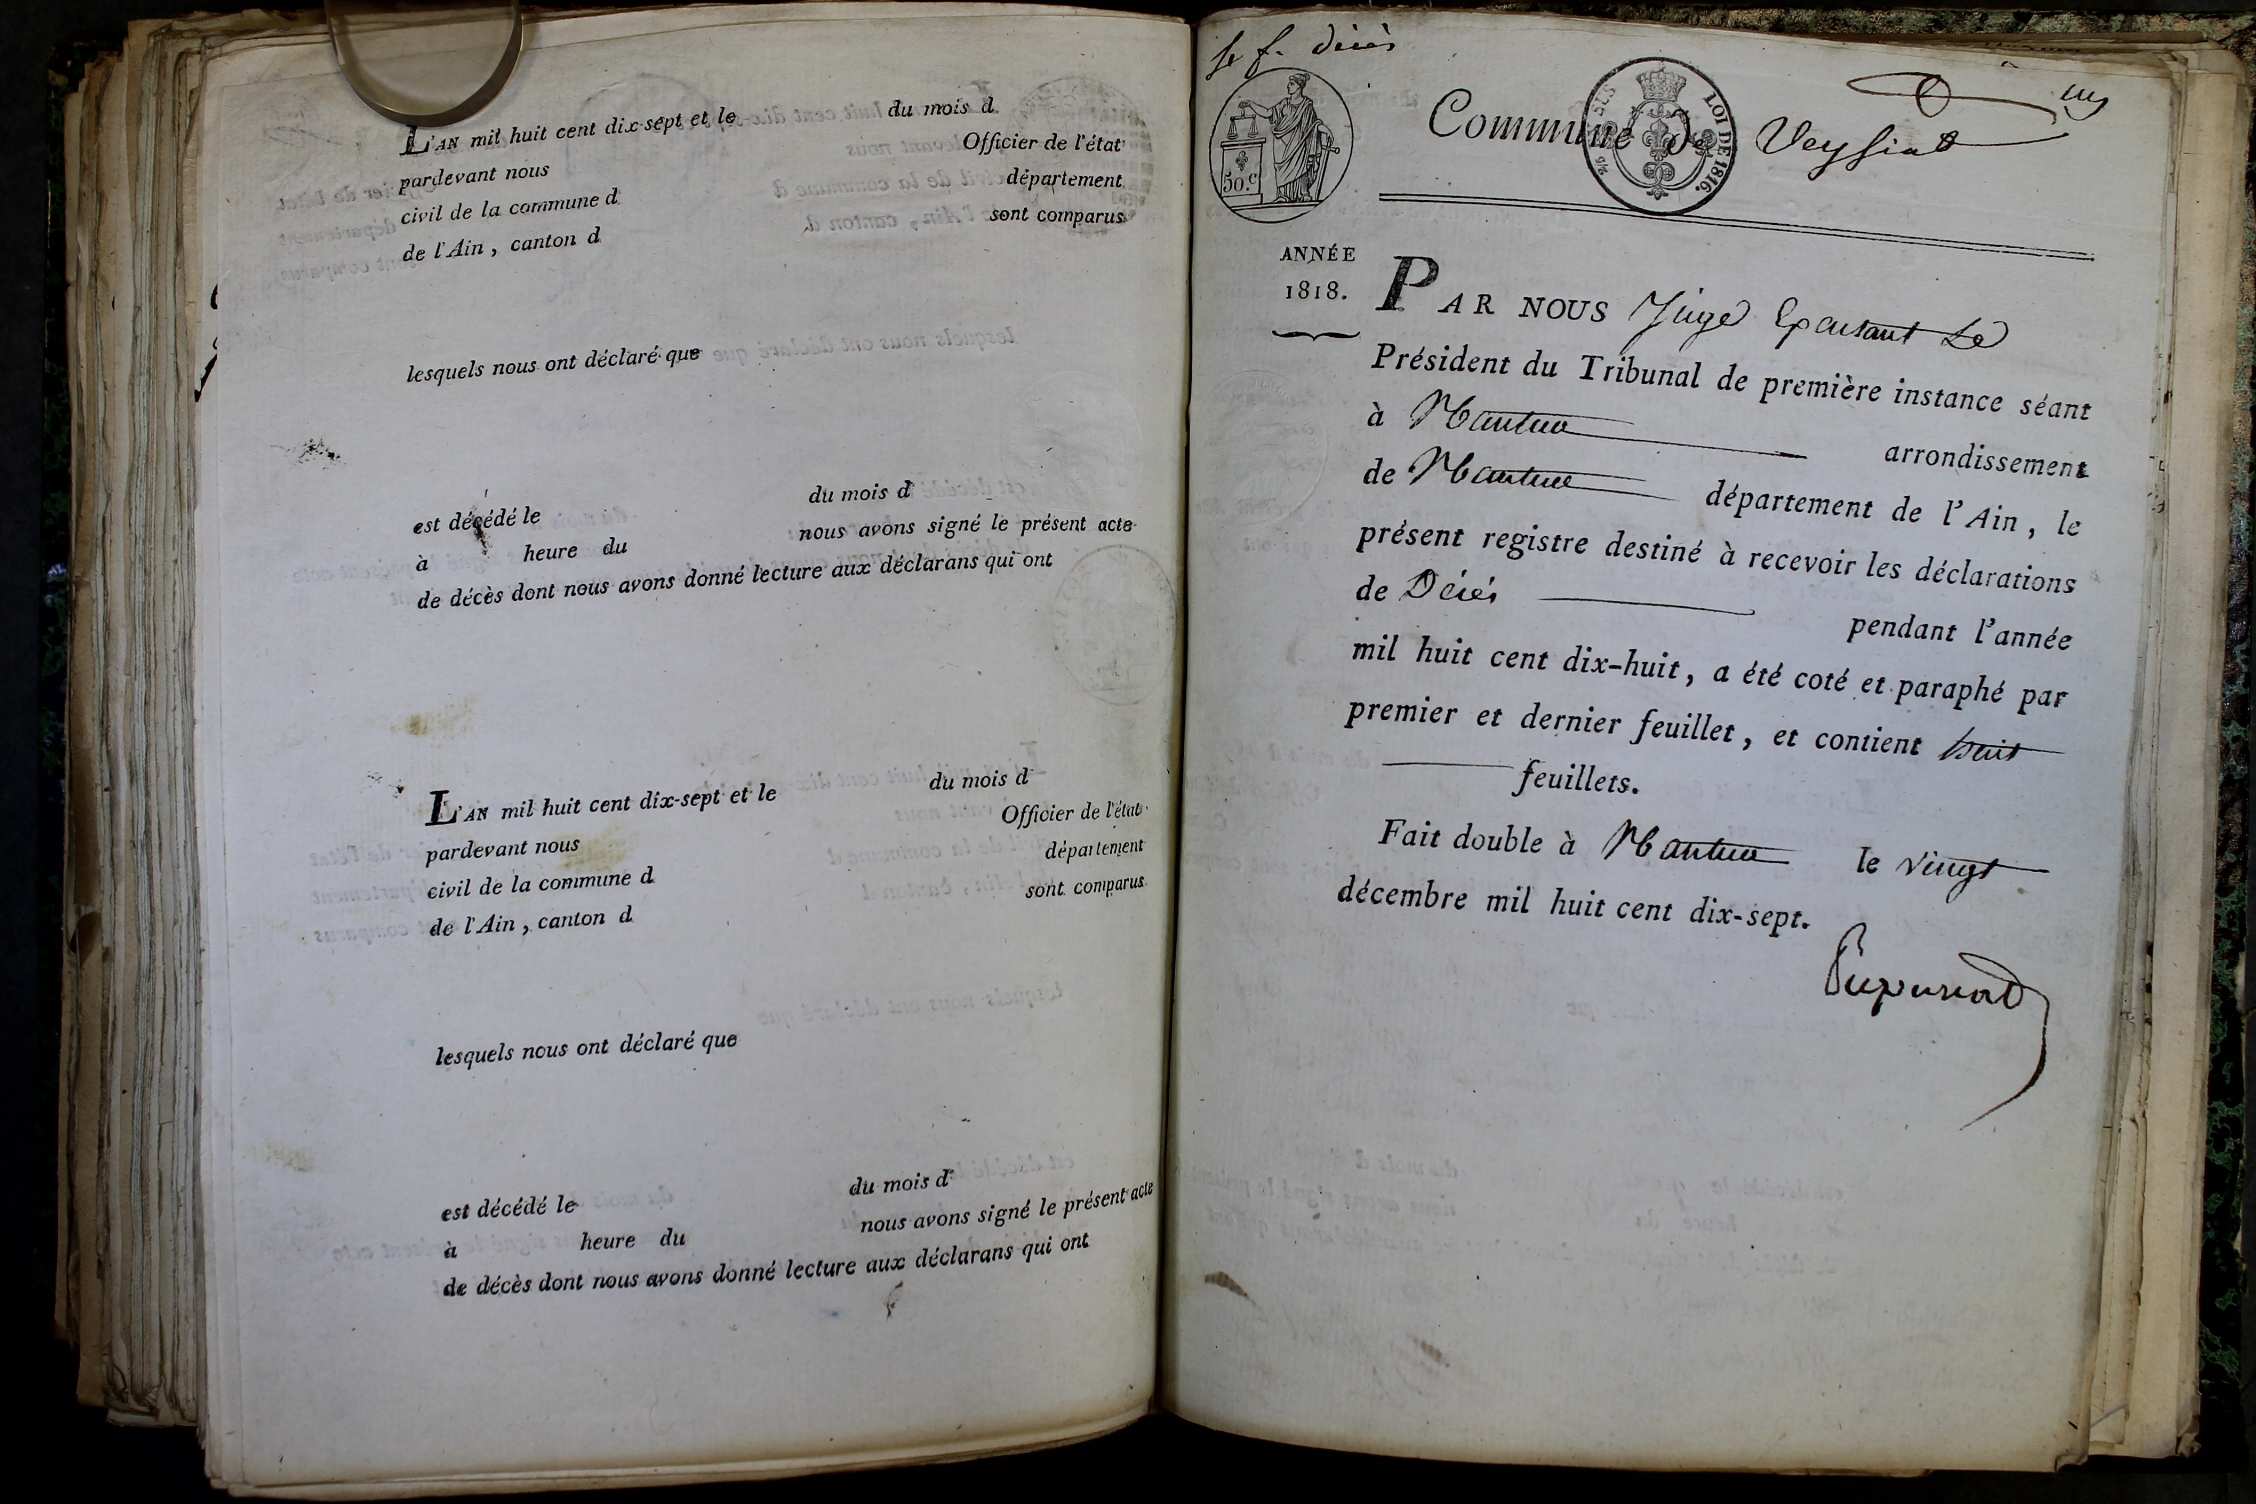 L'AN mil huit cent dix-sept et le du mois d
pardevant nous Officier de l'état
civil de la commune d département
de l'Ain, canton d sont comparus
lesquels nous ont déclaré que
est décédé le du mois d
à heure du nous avons signé le présent acte
de décès dont nous avons donné lecture aux déclarans qui ont
L'AN mil huit cent dix-sept et le du mois d
pardevant nous Officier de l'état
civil de la commune d département
de l'Ain, canton d sont comparus
lesquels nous ont déclaré que
est décédé le du mois d
à heure du nous avons signé le présent acte
de décès dont nous avons donné lecture aux déclarans qui ont
décès
50.c
LOI DE 1816.
Commune de Veyziat
ANNÉE
1818.
PAR NOUS Juge le
Président du Tribunal de première instance séant
à Nantua arrondissement
de Nantua département de l'Ain, le
présent registre destiné à recevoir les déclarations
de Décés pendant l'année
mil huit cent dix-huit, a été coté et paraphé par
premier et dernier feuillet, et contient huit
feuillets.
Fait double à Nantua le vingt
décembre mil huit cent dix-sept.